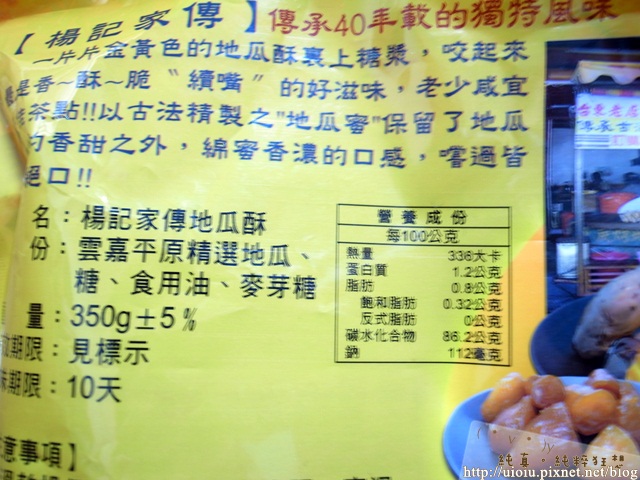 【楊記家傳】傳承40年載的獨特風味
一片片金黃色的地瓜酥裹上糖漿，咬起來
是香~酥~脆〝續嘴〞的好滋味，老少咸宜
茶點!!以古法精製之"地瓜蜜"保留了地瓜
香甜之外，綿密香濃的口感，嚐過皆
絕口!!
名：楊記家傳地瓜酥
份：雲嘉平原精選地瓜、
糖、食用油、麥芽糖
量：350g±5%
期限：見標示
期限：10天
意事項】
營養成份
每100公克
熱量 336大卡
蛋白質 1.2公克
脂肪 0.8公克
飽和脂肪 0.32公克
反式脂肪 0公克
碳水化合物 86.2公克
鈉 112毫克
台東老店
傳承古
純真。純粹狂想
http://uioiu.pixnet.net/blog